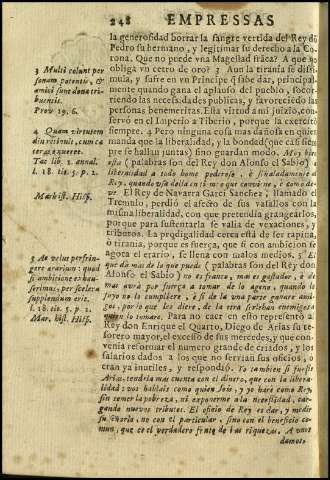 248 EMPRESSAS
la generosidad borrar la sangre vertida del Rey dō
Pedro su hermano, y legitimar su derecho a la Co
rona. Que no puede vna Magestad frāca? A que no
obliga vn cetro de oro? 3 Aun la tiranía se dissi-
mula, y sufre en vn Principe q̄ sabe dar, principal-
mente quando gana el aplauso del pueblo, socor-
riendo las necessidades publicas, y favoreciēdo las
personas benemeritas. Esta virtud a mi juizio, con-
servó en el Imperio a Tiberio, porque la exercitó
siempre. 4 Pero ninguna cosa mas dañosa en quien
manda que la liberalidad, y la bondad (que casi siem-
pre se hallan juntas) sino guardan modo. Muy bien
esta (palabras son del Rey don Alonso el Sabio) la
liberalidad a todo home poderoso, è señaladamente al
Rey, quando vsa della en tiēpo que conviene, è como de-
ve. El Rey de Navarra Garci Sanchez, llamado el
Tremulo, perdió el afecto de sus vasallos con la
misma liberalidad, con que pretendia grangearlos,
porque para sustentarla se valia de vexaciones, y
tributos. La prodigalidad cerca está de ser rapiña,
ò tirania, porque es fuerça, que si con ambicion se
agota el erario, se llena con malos medios. 5 El
que dà mas de lo que puede (palabras son del Rey don
Alonso el Sabio) no es franco, mas es gastador, è de
mas avrà por fuerça a tomar de lo ageno, quando lo
suyo no le cumpliere, è si de la vna parte ganare ami-
gos, por lo que les diere, de la otra serlehan enemigos a
quien lo tomare. Para no caer en esto representò a
Rey don Enrique el Quarto, Diego de Arias su te-
sorero mayor, el excesso de sus mercedes, y que con-
venia reformar el numero grande de criados, y los
salarios dados a los que no servian sus oficios, o
eran ya inutiles, y respondiò. Yo tambien si fuesse
Arias, tendria mas cuenta con el dinero, que con la libera-
lidad: vos hablais como quien sois, y yo harè como Rey,
sin temer la pobreza, ni exponerme a la necessidad, car-
gando nuevos tributos. El oficio de Rey es dar, y medir
su señorìo, no con el particular, sino con el beneficio co-
mun, que es el verdadero fruto de las riquezas. A vnos
damos,
3 Multi colunt per
sonam potentis, &
amici sunt dona tri-
buentis.
Prov. 19. 6.
4 Quam virtutem
diu retinuit, cum ce
teras exueret.
Tac. lib. 1. annal.
l. 18. tit. 5. p. 2.
Mar. hist. Hisp.
5 Ac velut perfrin-
gere ærarium: quod
si ambitione exhau-
serimus, per scelera
supplendum erit.
l. 18. tit. 5. p. 2.
Mar. hist. Hisp.